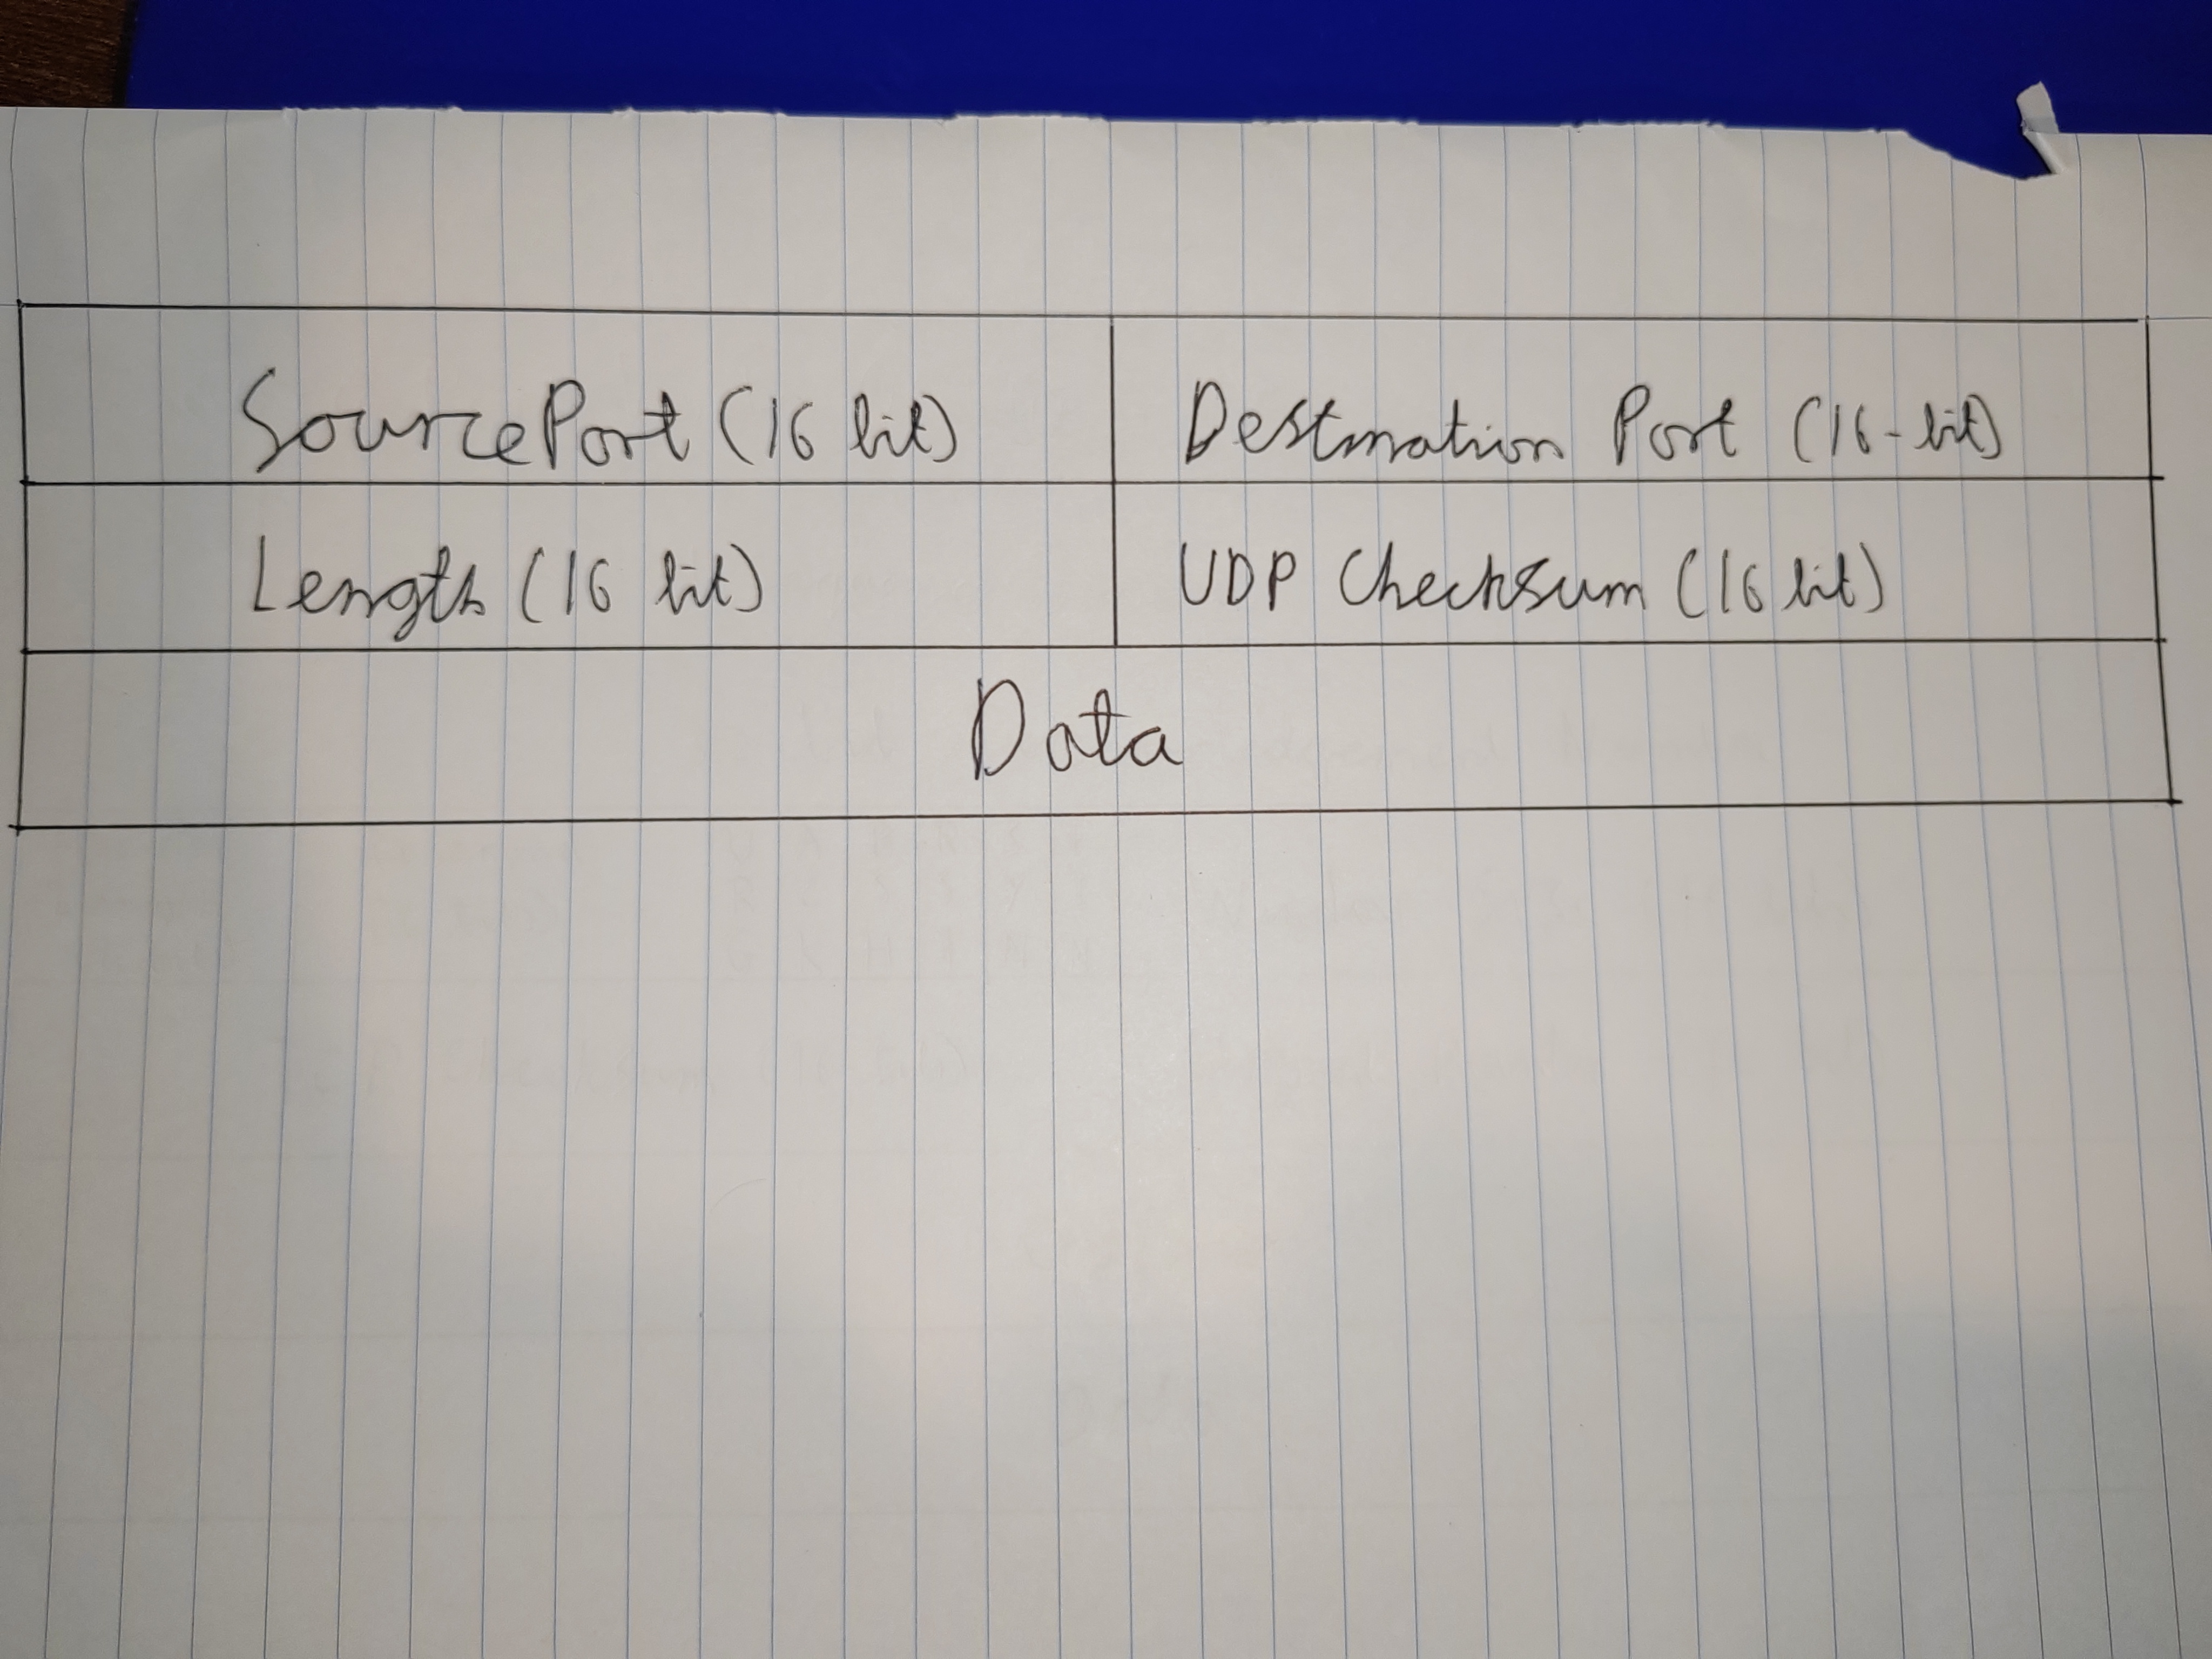 Source Port (16 bit)
Destination Port (16-bit)
Length (16 bit)
UDP Checksum (16 bit)
Data